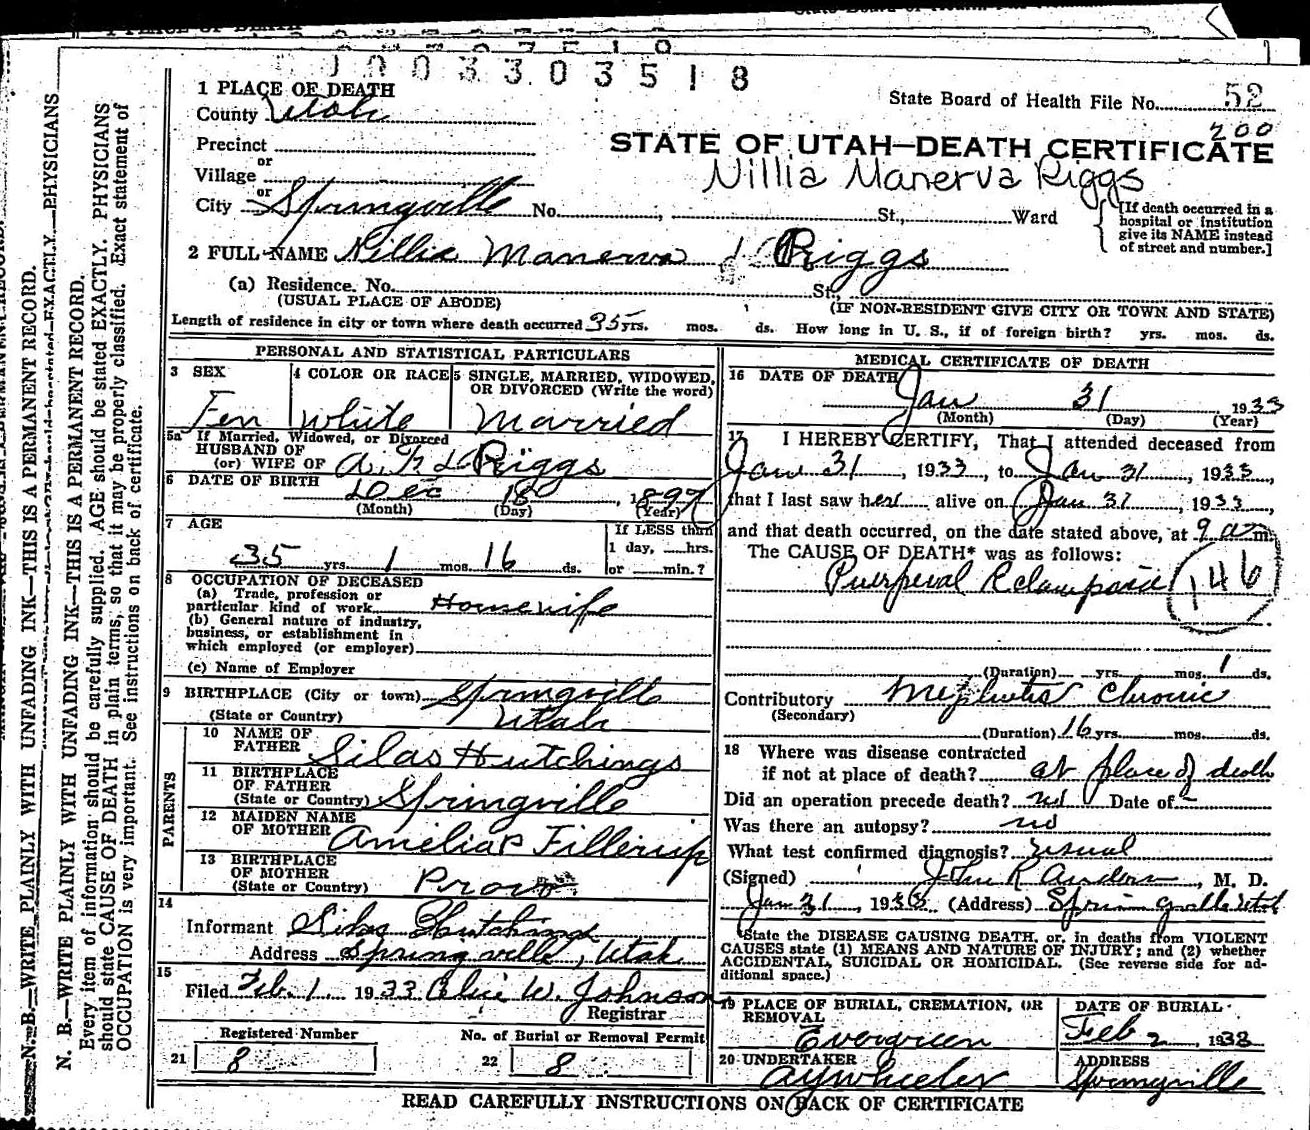 0003303518
1 PLACE OF DEATH
State Board of Health File No. 52
County Utah
200
STATE OF UTAH—DEATH CERTIFICATE
Precinct
or
Village
Nillia Manerva Riggs
or
City Springville No. , St., Ward
[If death occurred in a hospital or institution give its NAME instead of street and number.]
2 FULL NAME Nillia Manerva Riggs
(a) Residence. No. St.,
(USUAL PLACE OF ABODE) (IF NON-RESIDENT GIVE CITY OR TOWN AND STATE)
Length of residence in city or town where death occurred 35 yrs. mos. ds. How long in U. S., if of foreign birth? yrs. mos. ds.
PERSONAL AND STATISTICAL PARTICULARS
3 SEX
Fem
4 COLOR OR RACE
White
5 SINGLE, MARRIED, WIDOWED, OR DIVORCED (Write the word)
Married
5a If Married, Widowed, or Divorced
HUSBAND OF
(or) WIFE OF Riggs
6 DATE OF BIRTH Dec 18, 1897
(Month) (Day) (Year)
7 AGE
35 yrs. 1 mos. 16 ds.
If LESS than
1 day, hrs.
or min.?
8 OCCUPATION OF DECEASED
(a) Trade, profession or
particular kind of work Housewife
(b) General nature of industry,
business, or establishment in
which employed (or employer)
(c) Name of Employer
9 BIRTHPLACE (City or town) Springville
(State or Country) Utah
PARENTS
10 NAME OF
FATHER Silas Hutchings
11 BIRTHPLACE
OF FATHER
(State or Country) Springville
12 MAIDEN NAME
OF MOTHER Amelia Fillerup
13 BIRTHPLACE
OF MOTHER
(State or Country) Provo
14
Informant Silas Hutchings
Address Springville, Utah
15
Filed Feb. 1, 1933 Alice W. Johnson
Registrar
Registered Number
21 8
No. of Burial or Removal Permit
22 8
MEDICAL CERTIFICATE OF DEATH
16 DATE OF DEATH
Jan 31 1933
(Month) (Day) (Year)
17 I HEREBY CERTIFY, That I attended deceased from
Jan 31, 1933, to Jan 31, 1933,
that I last saw her alive on Jan 31, 1933,
and that death occurred, on the date stated above, at 9 a m.
The CAUSE OF DEATH* was as follows:
Puerperal Eclampsia
146
(Duration) yrs. mos. 1 ds.
Contributory Nephritis Chronic
(Secondary)
(Duration) 16 yrs. mos. ds.
18 Where was disease contracted
if not at place of death? at place of death
Did an operation precede death? no Date of -
Was there an autopsy? no
What test confirmed diagnosis? usual
(Signed) John R Anderson, M. D.
Jan 31, 1933 (Address) Springville Utah
*State the DISEASE CAUSING DEATH, or, in deaths from VIOLENT
CAUSES state (1) MEANS AND NATURE OF INJURY; and (2) whether
ACCIDENTAL, SUICIDAL OR HOMICIDAL. (See reverse side for ad-
ditional space.)
19 PLACE OF BURIAL, CREMATION, OR
REMOVAL
Evergreen
DATE OF BURIAL
Feb 2, 1933
20 UNDERTAKER
A Y Wheeler
ADDRESS
Springville
READ CAREFULLY INSTRUCTIONS ON BACK OF CERTIFICATE
N. B.—WRITE PLAINLY WITH UNFADING INK—THIS IS A PERMANENT RECORD.
N. B.—WRITE PLAINLY WITH UNFADING INK—THIS IS A PERMANENT RECORD.
Every item of information should be carefully supplied. AGE should be stated EXACTLY. PHYSICIANS
should state CAUSE OF DEATH in plain terms, so that it may be properly classified. Exact statement of
OCCUPATION is very important. See instructions on back of certificate.